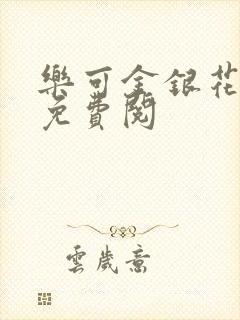 樂可金銀花
免費閱
雲歲意